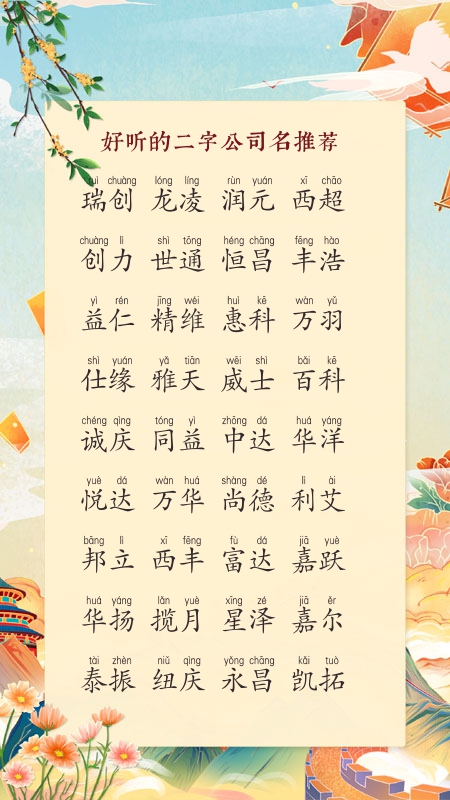 好听的二字公司名推荐
ruì chuàng lóng líng rùn yuán xī chāo
瑞创 龙凌 润元 西超
chuàng lì shì tōng héng chāng fēng hào
创力 世通 恒昌 丰浩
yì rén jīng wéi huì kē wàn yǔ
益仁 精维 惠科 万羽
shì yuán yǎ tiān wēi shì bǎi kē
仕缘 雅天 威士 百科
chéng qìng tóng yì zhōng dá huá yáng
诚庆 同益 中达 华洋
yuè dá wàn huá shàng dé lì ài
悦达 万华 尚德 利艾
bāng lì xī fēng fù dá jiā yuè
邦立 西丰 富达 嘉跃
huá yáng lǎn yuè xīng zé jiā ěr
华扬 揽月 星泽 嘉尔
tài zhèn niǔ qìng yǒng chāng kǎi tuò
泰振 纽庆 永昌 凯拓